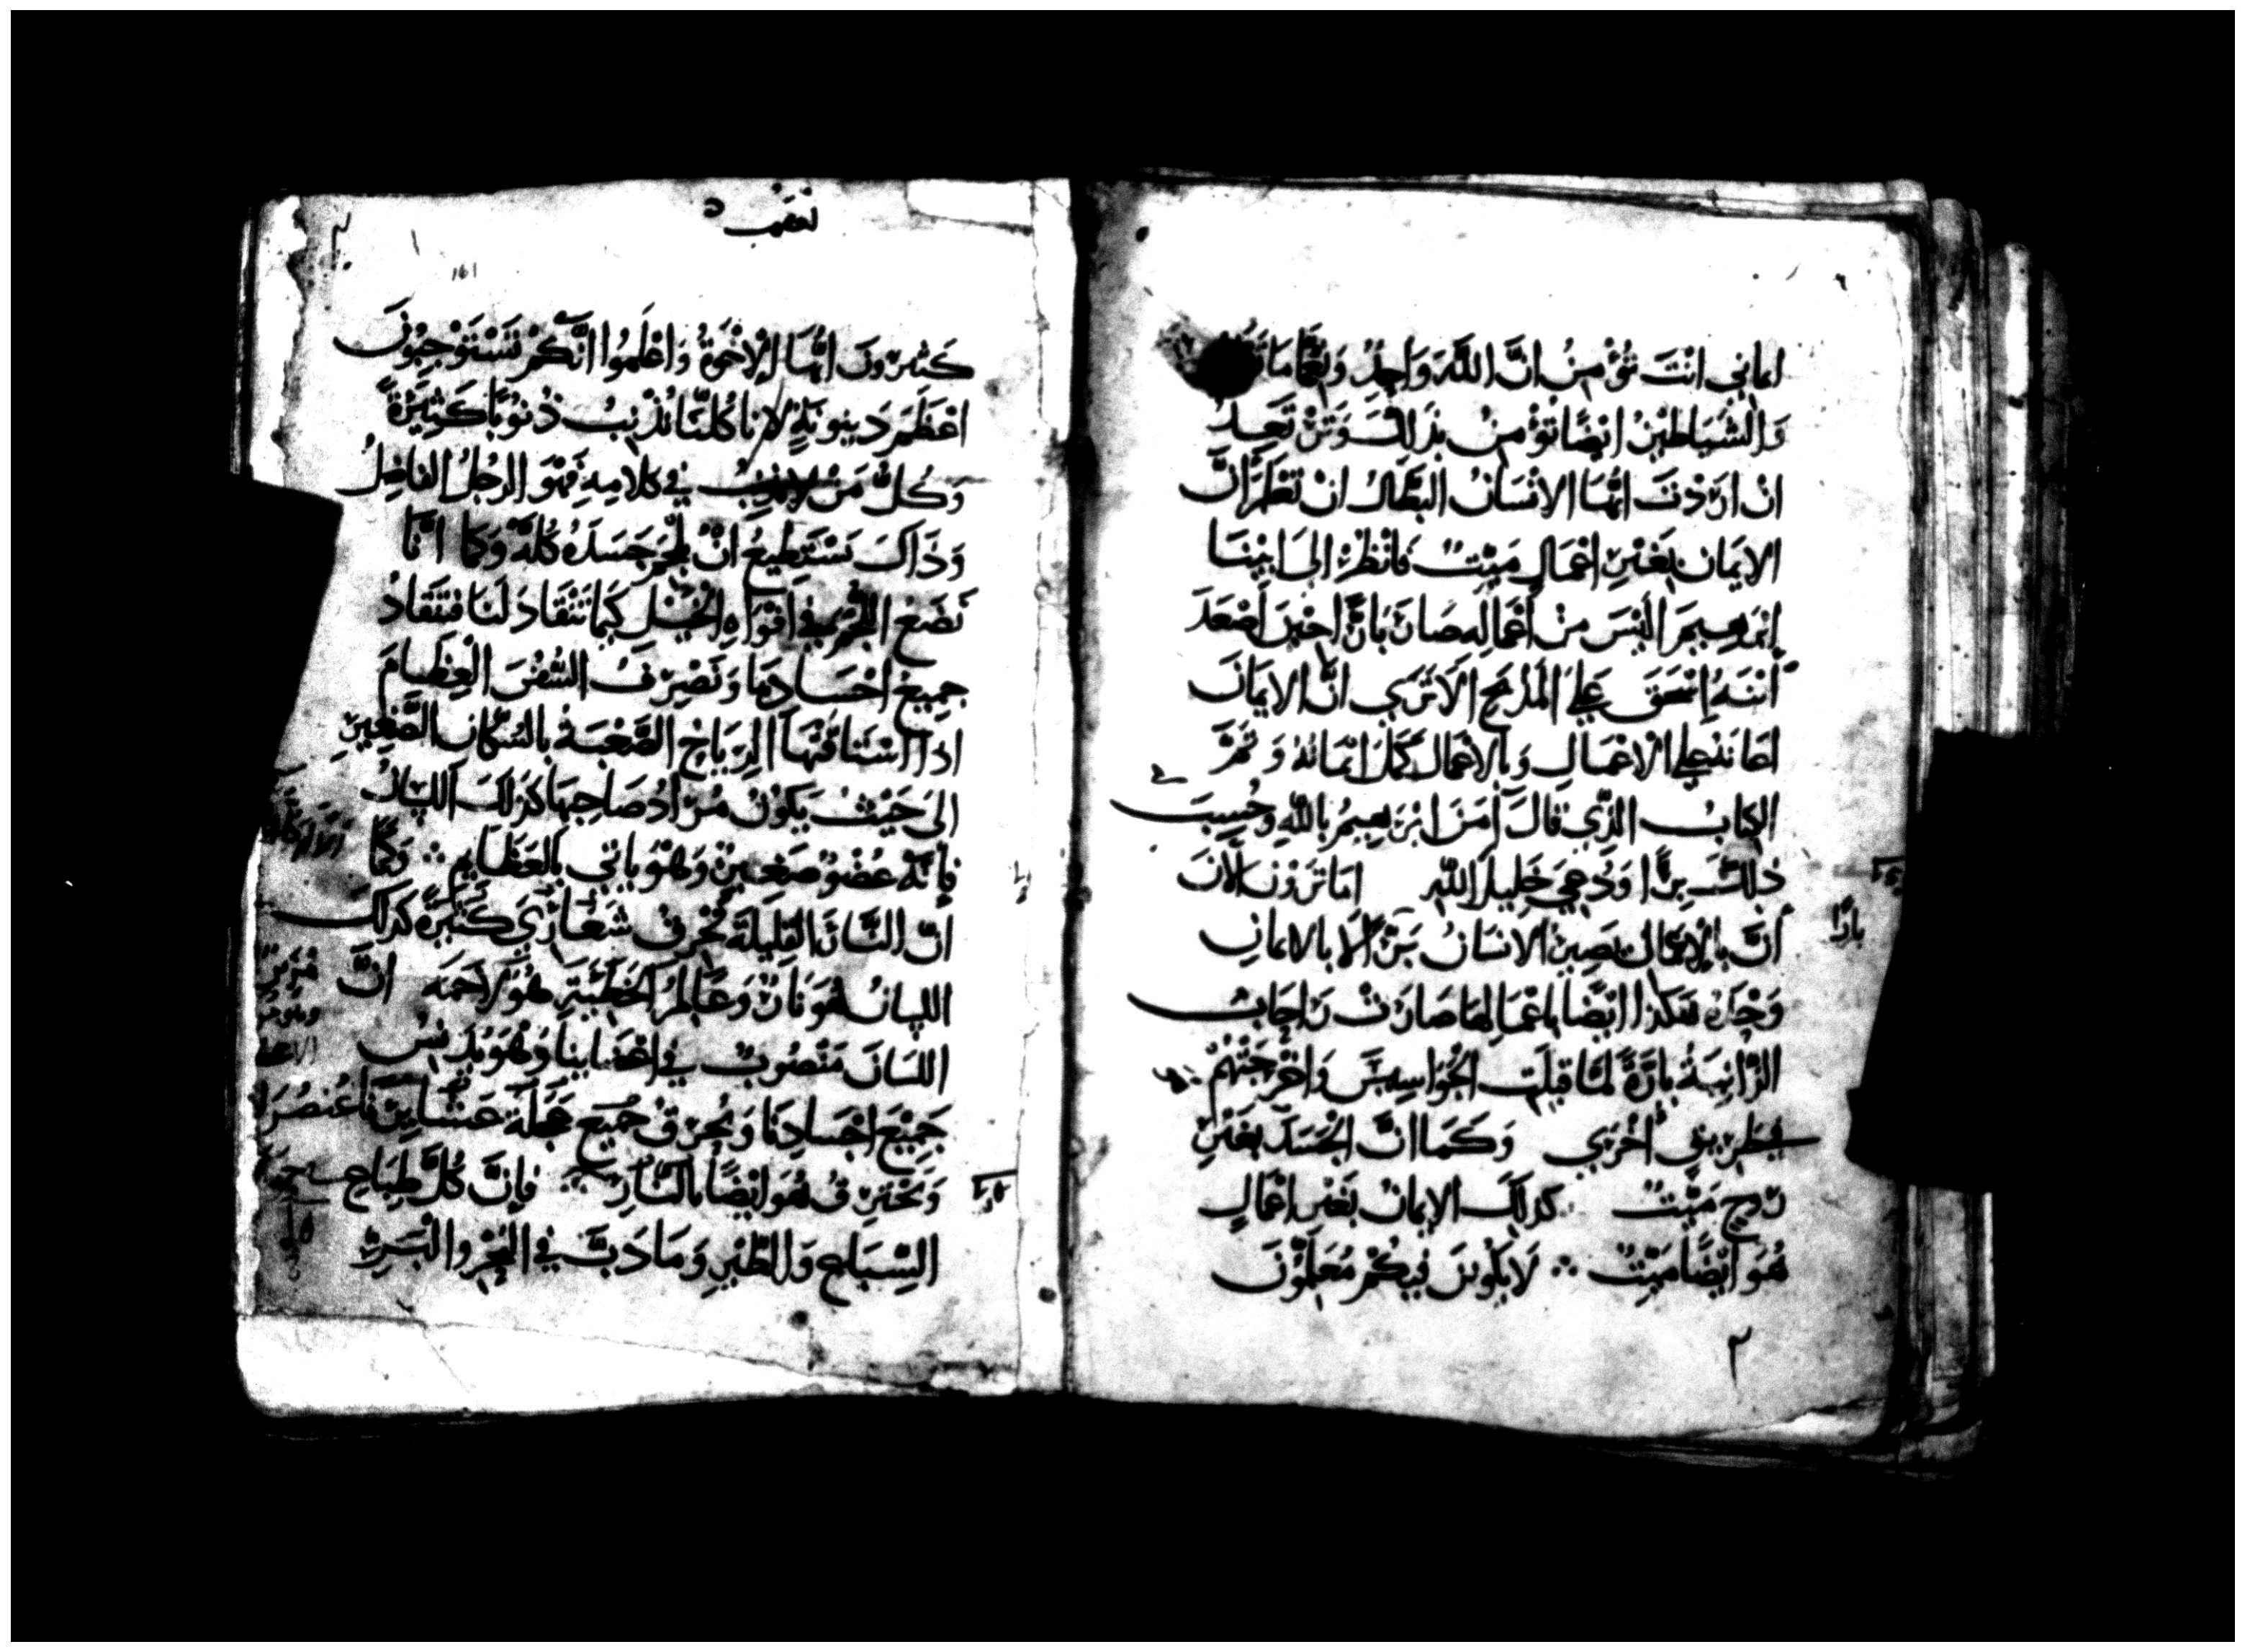 ايماني انْتَ تُؤْمِنُ انَّ اللَّهَ وَاحِدٌ وَنِعْمَّا مَا
وَالشَيَاطِيْنُ ايْضًا تؤْمِنُ بذَلِكَ وَتَرْتَعِدُ
انْ ارَدْتَ ايُّهَا الانْسَانُ البَطَّالُ انْ تَعْلَمَ انَّ
الايمَان بغَيْرِ اعْمَالٍ مَيِّتٌ فَانْظُرْ الَى ابِيْنَا
ابْرَهِيمَ الَيْسَ مِنْ اعْمَالِهِ صَارَ بَارًّا حِيْنَ اصْعَدَ
ابْنَهُ اسْحَقَ عَلَى المَذْبَحِ الَا تَرَي انَّ الايمَانَ
اعَانَهُ عَلَى الاعْمَالِ وَبالاعْمَالِ كَمَلَ ايْمَانُهُ وَتَمَّ
الكِتَابُ الَّذِي قَالَ آمَنَ ابْرَهِيمُ بِاللَّهِ وَحُسِبَ
ذلِكَ بِرًّا وَدُعِيَ خَلِيلَ اللَّهِ امَا تَرَوْنَ الآنَ
انَّ بِالاعْمَالِ يَصِيْرُ الانسَانُ بَرًّا لَا بالايمَانِ
وَحْدَهُ هَكَذَا ايْضًا بِاعْمَالِهَا صَارَتْ رَاحَابُ
الزَّانِيَةُ بارَّةً لمَّا قَبِلَتِ الجَوَاسِيسَ وَاخْرَجَتْهُمْ
فِي طَرِيْقٍ اخْرَي وَكَمَا انَّ الجَسَدَ بغَيْرِ
رُوحٍ مَيِّتٌ كَذلِكَ الايمَانُ بِغَيْرِ اعْمَالٍ
هُوَ ايْضًا مَيِّتٌ لَا يَكُونَ فِيكُمْ مُعَلِّمُونَ
بارًّا
٢
161
كَثِيْرُونَ ايُّهَا الاخْوَةُ وَاعْلَمُوا انَّكُمْ تَسْتَوْجِبُونَ
اعْظَمَ دَيْنُونَةٍ لانا كُلُّنَا نُذْنِبُ ذُنُوبًا كَثِيْرَةً
وَكُلُّ مَنْ لا يُذْنِبُ فِي كَلامِهِ فَهُوَ الرجُلُ الفَاضِلُ
وَذَاكَ يَسْتَطِيعُ انْ يُلْجِمَ جَسَدَهُ كُلَّهُ وَكَمَا انَّا
نَضَعُ اللُّجُمَ فِي افْوَاهِ الخَيْلِ كَيْمَا تَنْقَادَ لَنَا فَتَنْقَادُ
جَمِيعُ اجْسَادِهَا وَنُصَرِّفُ السُّفُنَ العِظَامَ
اذَا اسْتَاقَتْهَا الرِّيَاحُ الصَّعْبَةُ بالسُكَّانِ الصَّغِيْرِ
الَى حَيْثُ يَكُونُ مُرَادُ صَاحِبِهَا كَذلِكَ اللِّسَانُ
فَإِنَّهُ عُضْوٌ صَغِيرٌ وَهُوَ ياتِي بِالعَظَايمِ وَكَمَا
انَّ النَّارَ القَلِيلَةَ تُحْرِقُ شَعَارِيَ كَثِيْرَةً كَذلِكَ
اللِّسَانُ هُوَ نَارٌ وَعَالَمُ الخَطِيَّةِ هُوَ لانَّ
اللِّسَانَ مَنْصُوبٌ فِي اعْضَايِنَا وَهُوَ يُدَنِّسُ
جَمِيْعَ اجْسَادِنَا وَيُحْرِقُ جَمِيْعَ عَجَلَةِ عُنْصُرِنَا
وَيَحْتَرِقُ هُوَ ايْضًا بالنَّارِ فَإِنَّ كُلَّ طِبَاعِ
السِّبَاعِ وَالطَّيْرِ وَمَا دَبَّ فِي البَحْرِ وَالبَرِّ